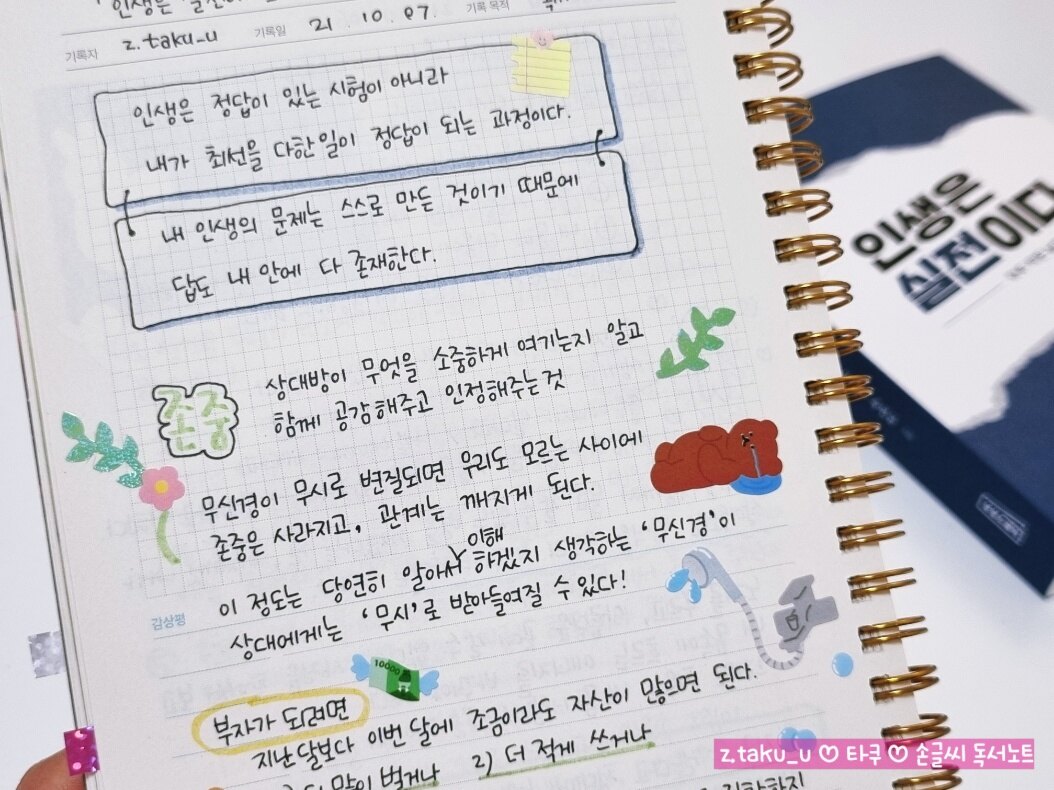 인생은
기록자 z.taku_u 기록일 21.10.07. 기록 목적
인생은 정답이 있는 시험이 아니라
내가 최선을 다한 일이 정답이 되는 과정이다.
내 인생의 문제는 스스로 만든 것이기 때문에
답도 내 안에 다 존재한다.
존중
상대방이 무엇을 소중하게 여기는지 알고
함께 공감해주고 인정해주는것
무신경이 무시로 변질되면 우리도 모르는 사이에
존중은 사라지고, 관계는 깨지게 된다.
감상평
이 정도는 당연히 알아서 이해 하겠지 생각하는 '무신경'이
상대에게는 '무시'로 받아들여질 수 있다!
10000
부자가 되려면
지난달보다 이번 달에 조금이라도 자산이 많으면 된다.
더 많이 벌거나 2) 더 적게 쓰거나
인생은
실전이다
z.taku_u ♡ 타쿠 ♡ 손글씨 독서노트